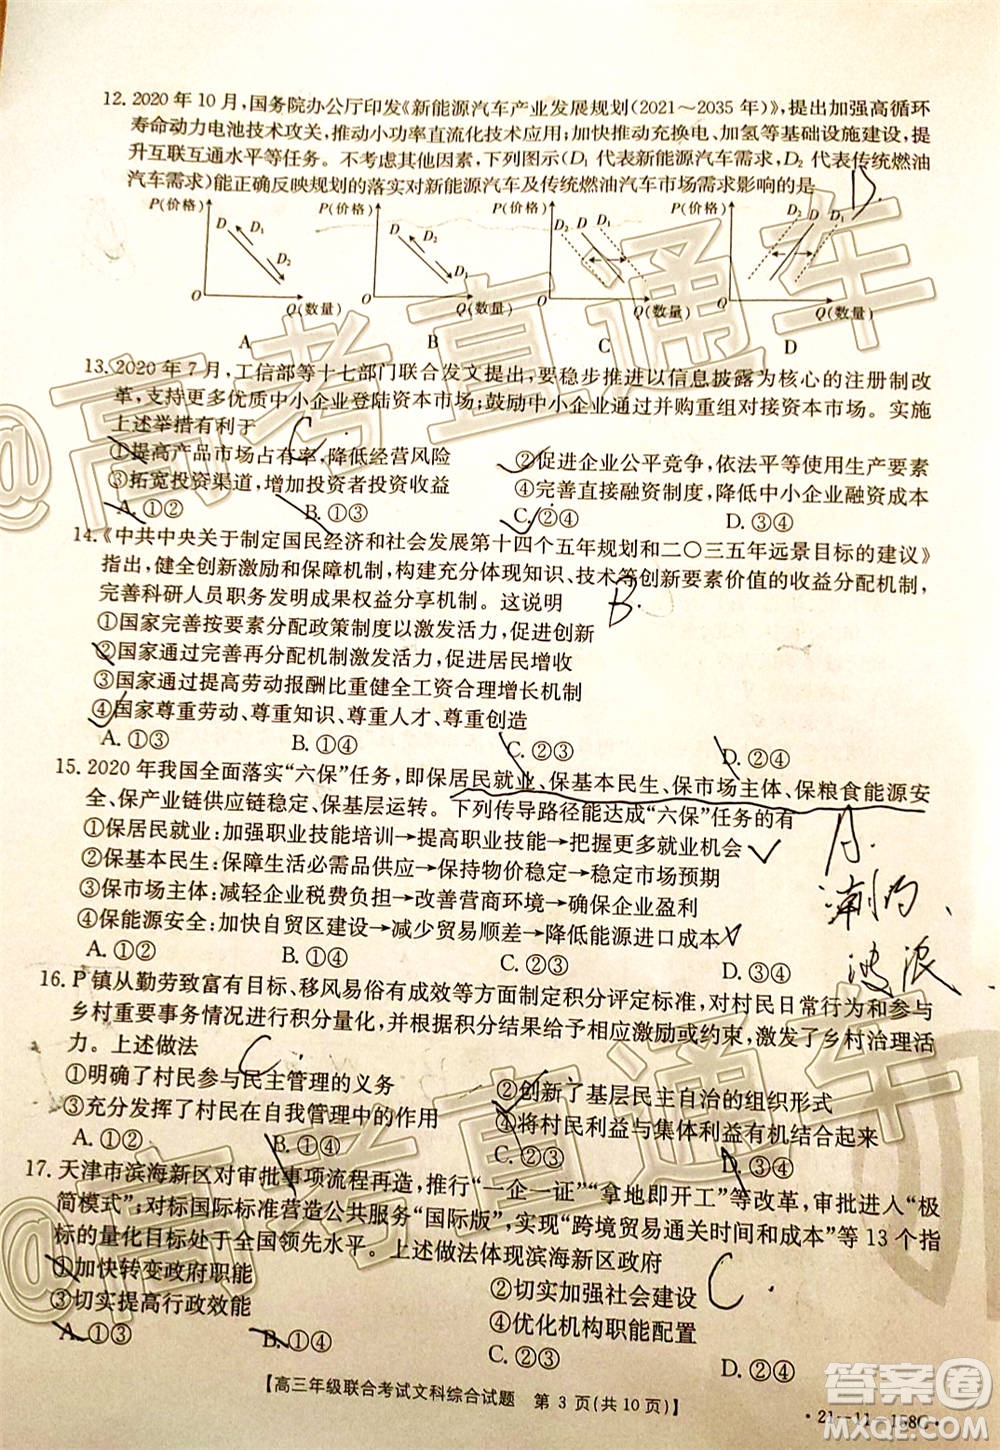 12. 2020 年 10 月，国务院办公厅印发《新能源汽车产业发展规划(2021～2035 年)》，提出加强高循环
寿命动力电池技术攻关，推动小功率直流化技术应用；加快推动充换电、加氢等基础设施建设，提
升互联互通水平等任务。不考虑其他因素，下列图示(D₁ 代表新能源汽车需求，D₂ 代表传统燃油
汽车需求)能正确反映规划的落实对新能源汽车及传统燃油汽车市场需求影响的是
D.
P(价格) P(价格) P(价格) P(价格)
D D₁ D D₂ D₂ D D₁ D₂ D D₁
O Q(数量) O Q(数量) O Q(数量) O Q(数量)
A B C D
13. 2020 年 7 月，工信部等十七部门联合发文提出，要稳步推进以信息披露为核心的注册制改
革，支持更多优质中小企业登陆资本市场；鼓励中小企业通过并购重组对接资本市场。实施
上述举措有利于 C.
①提高产品市场占有率，降低经营风险 ②促进企业公平竞争，依法平等使用生产要素
③拓宽投资渠道，增加投资者投资收益 ④完善直接融资制度，降低中小企业融资成本
A. ①② B. ①③ C. ②④ D. ③④
14.《中共中央关于制定国民经济和社会发展第十四个五年规划和二〇三五年远景目标的建议》
指出，健全创新激励和保障机制，构建充分体现知识、技术等创新要素价值的收益分配机制，
完善科研人员职务发明成果权益分享机制。这说明 B.
①国家完善按要素分配政策制度以激发活力，促进创新
②国家通过完善再分配机制来激发活力，促进居民增收
③国家通过提高劳动报酬比重健全工资合理增长机制
④国家尊重劳动、尊重知识、尊重人才、尊重创造
A. ①③ B. ①④ C. ②③ D. ②④
15. 2020 年我国全面落实“六保”任务，即保居民就业、保基本民生、保市场主体、保粮食能源安
全、保产业链供应链稳定、保基层运转。下列传导路径能达成“六保”任务的有
①保居民就业：加强职业技能培训→提高职业技能→把握更多就业机会
②保基本民生：保障生活必需品供应→保持物价稳定→稳定市场预期
③保市场主体：减轻企业税费负担→改善营商环境→确保企业盈利
④保能源安全：加快自贸区建设→减少贸易顺差→降低能源进口成本
A. ①② B. ①④ C. ②③ D. ③④
A.
16. P 镇从勤劳致富有目标、移风易俗有成效等方面制定积分评定标准，对村民日常行为和参与
乡村重要事务情况进行积分量化，并根据积分结果给予相应激励或约束，激发了乡村治理活
力。上述做法 C.
①明确了村民参与民主管理的义务 ②创新了基层民主自治的组织形式
③充分发挥了村民在自我管理中的作用 ④将村民利益与集体利益有机结合起来
A. ①② B. ①④ C. ②③ D. ③④
17. 天津市滨海新区对审批事项流程再造，推行“一企一证”“拿地即开工”等改革，审批进入“极
简模式”；对标国际标准营造公共服务“国际版”，实现“跨境贸易通关时间和成本”等 13 个指
标的量化目标处于全国领先水平。上述做法体现滨海新区政府 C.
①加快转变政府职能 ②切实加强社会建设
③切实提高行政效能 ④优化机构职能配置
A. ①③ B. ①④ C. ②③ D. ②④
【高三年级联合考试文科综合试题 第 3 页(共 10 页)】
·21-11-158C·
@高考直通车
@高考直通车
答案圈